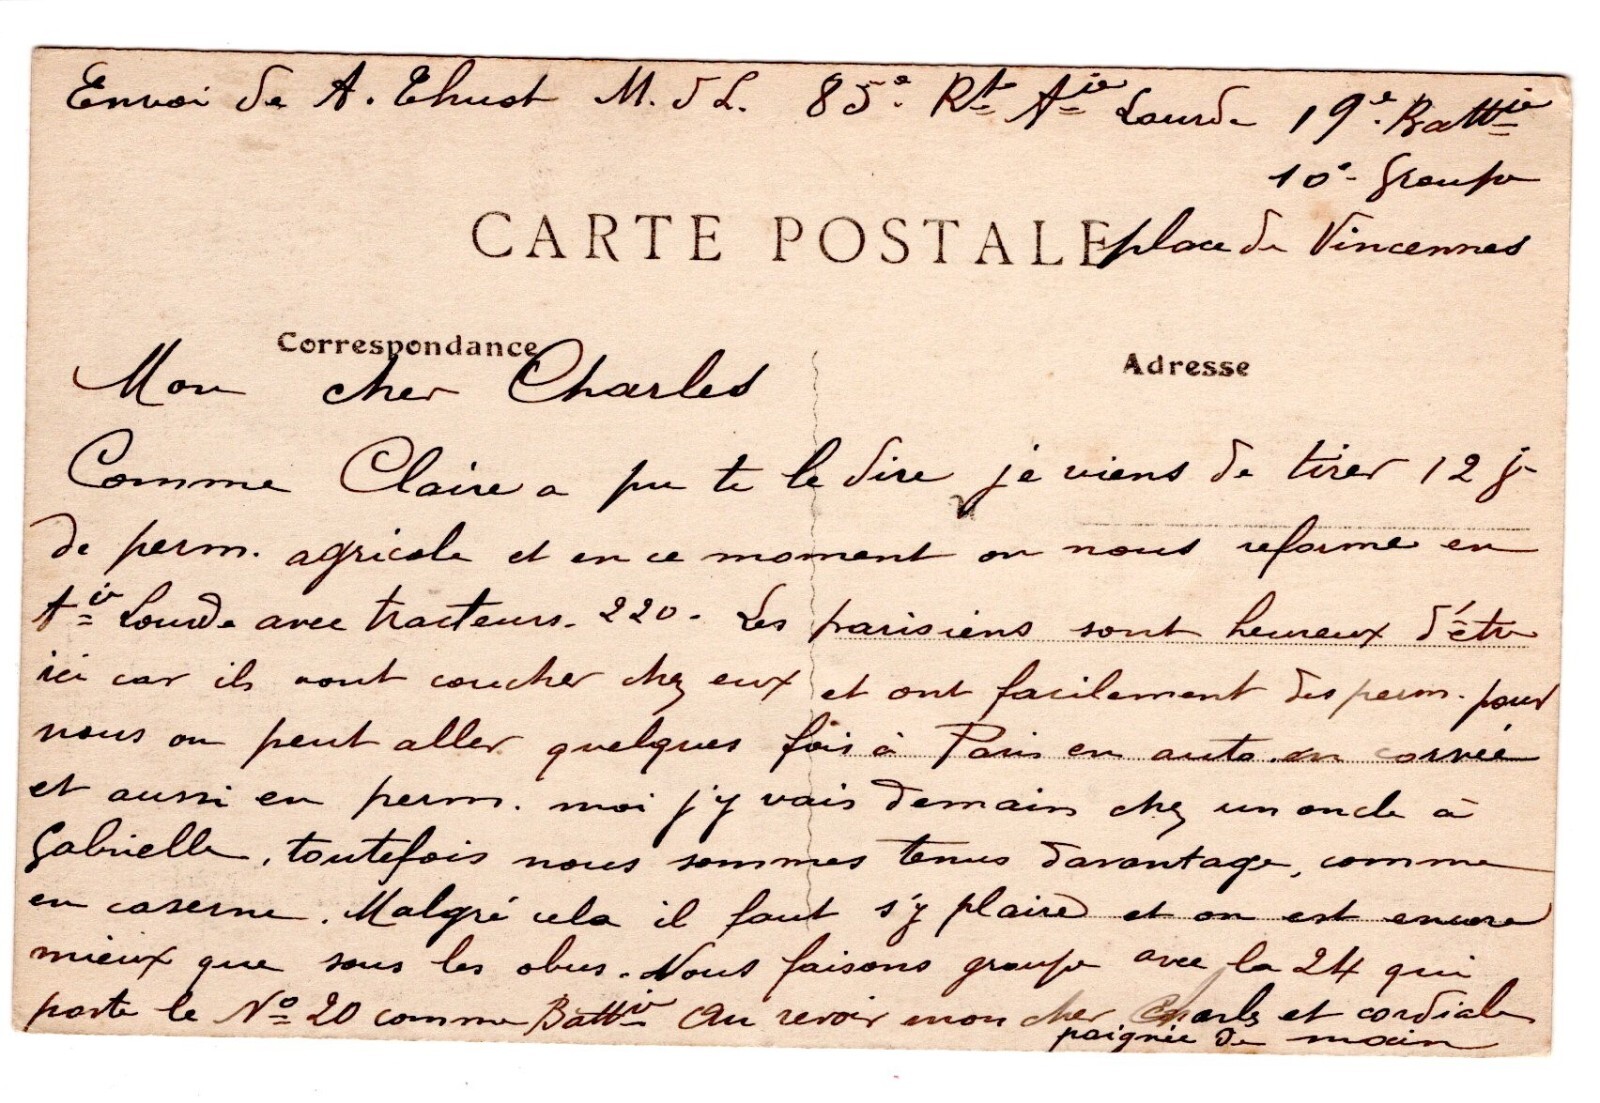 Envoi de A. Thust M. d L. 85e. Rt Aie Lourde 19e. Battie
10e. groupe
CARTE POSTALE
place de Vincennes
Correspondance
Adresse
Mon cher Charles
Comme Claire a pu te le dire je viens de tirer 12 j
de perm. agricole et en ce moment on nous reforme en
Aie Lourde avec tracteurs. 220. Les parisiens sont heureux d'être
ici car ils vont coucher chez eux et ont facilement des perm. pour
nous on peut aller quelques fois à Paris en auto en corvée
et aussi en perm. moi j'y vais demain chez un oncle à
Gabrielle, toutefois nous sommes tenus davantage, comme
en caserne. Malgré cela il faut s'y plaire et on est encore
mieux que sous les obus. Nous faisons groupe avec la 24 qui
porte le No 20 comme Battie Au revoir mon cher Charles et cordiale
poignée de main